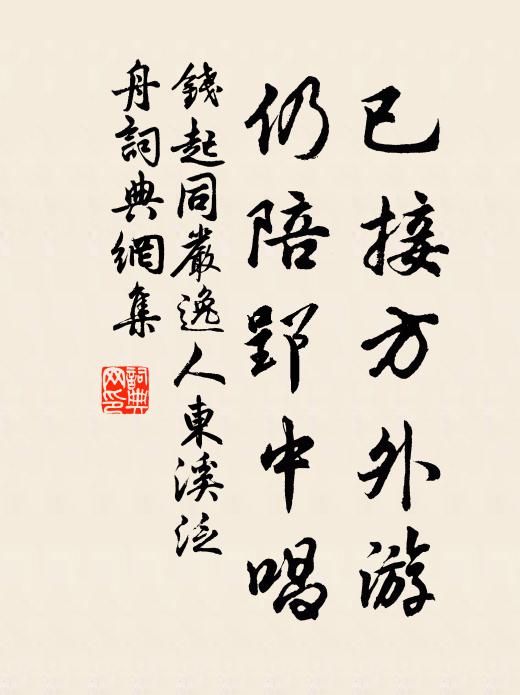 已接方外游
仍陪郢中唱
錢起同嚴逸人東溪泛
舟詞典網集
詞典
网印